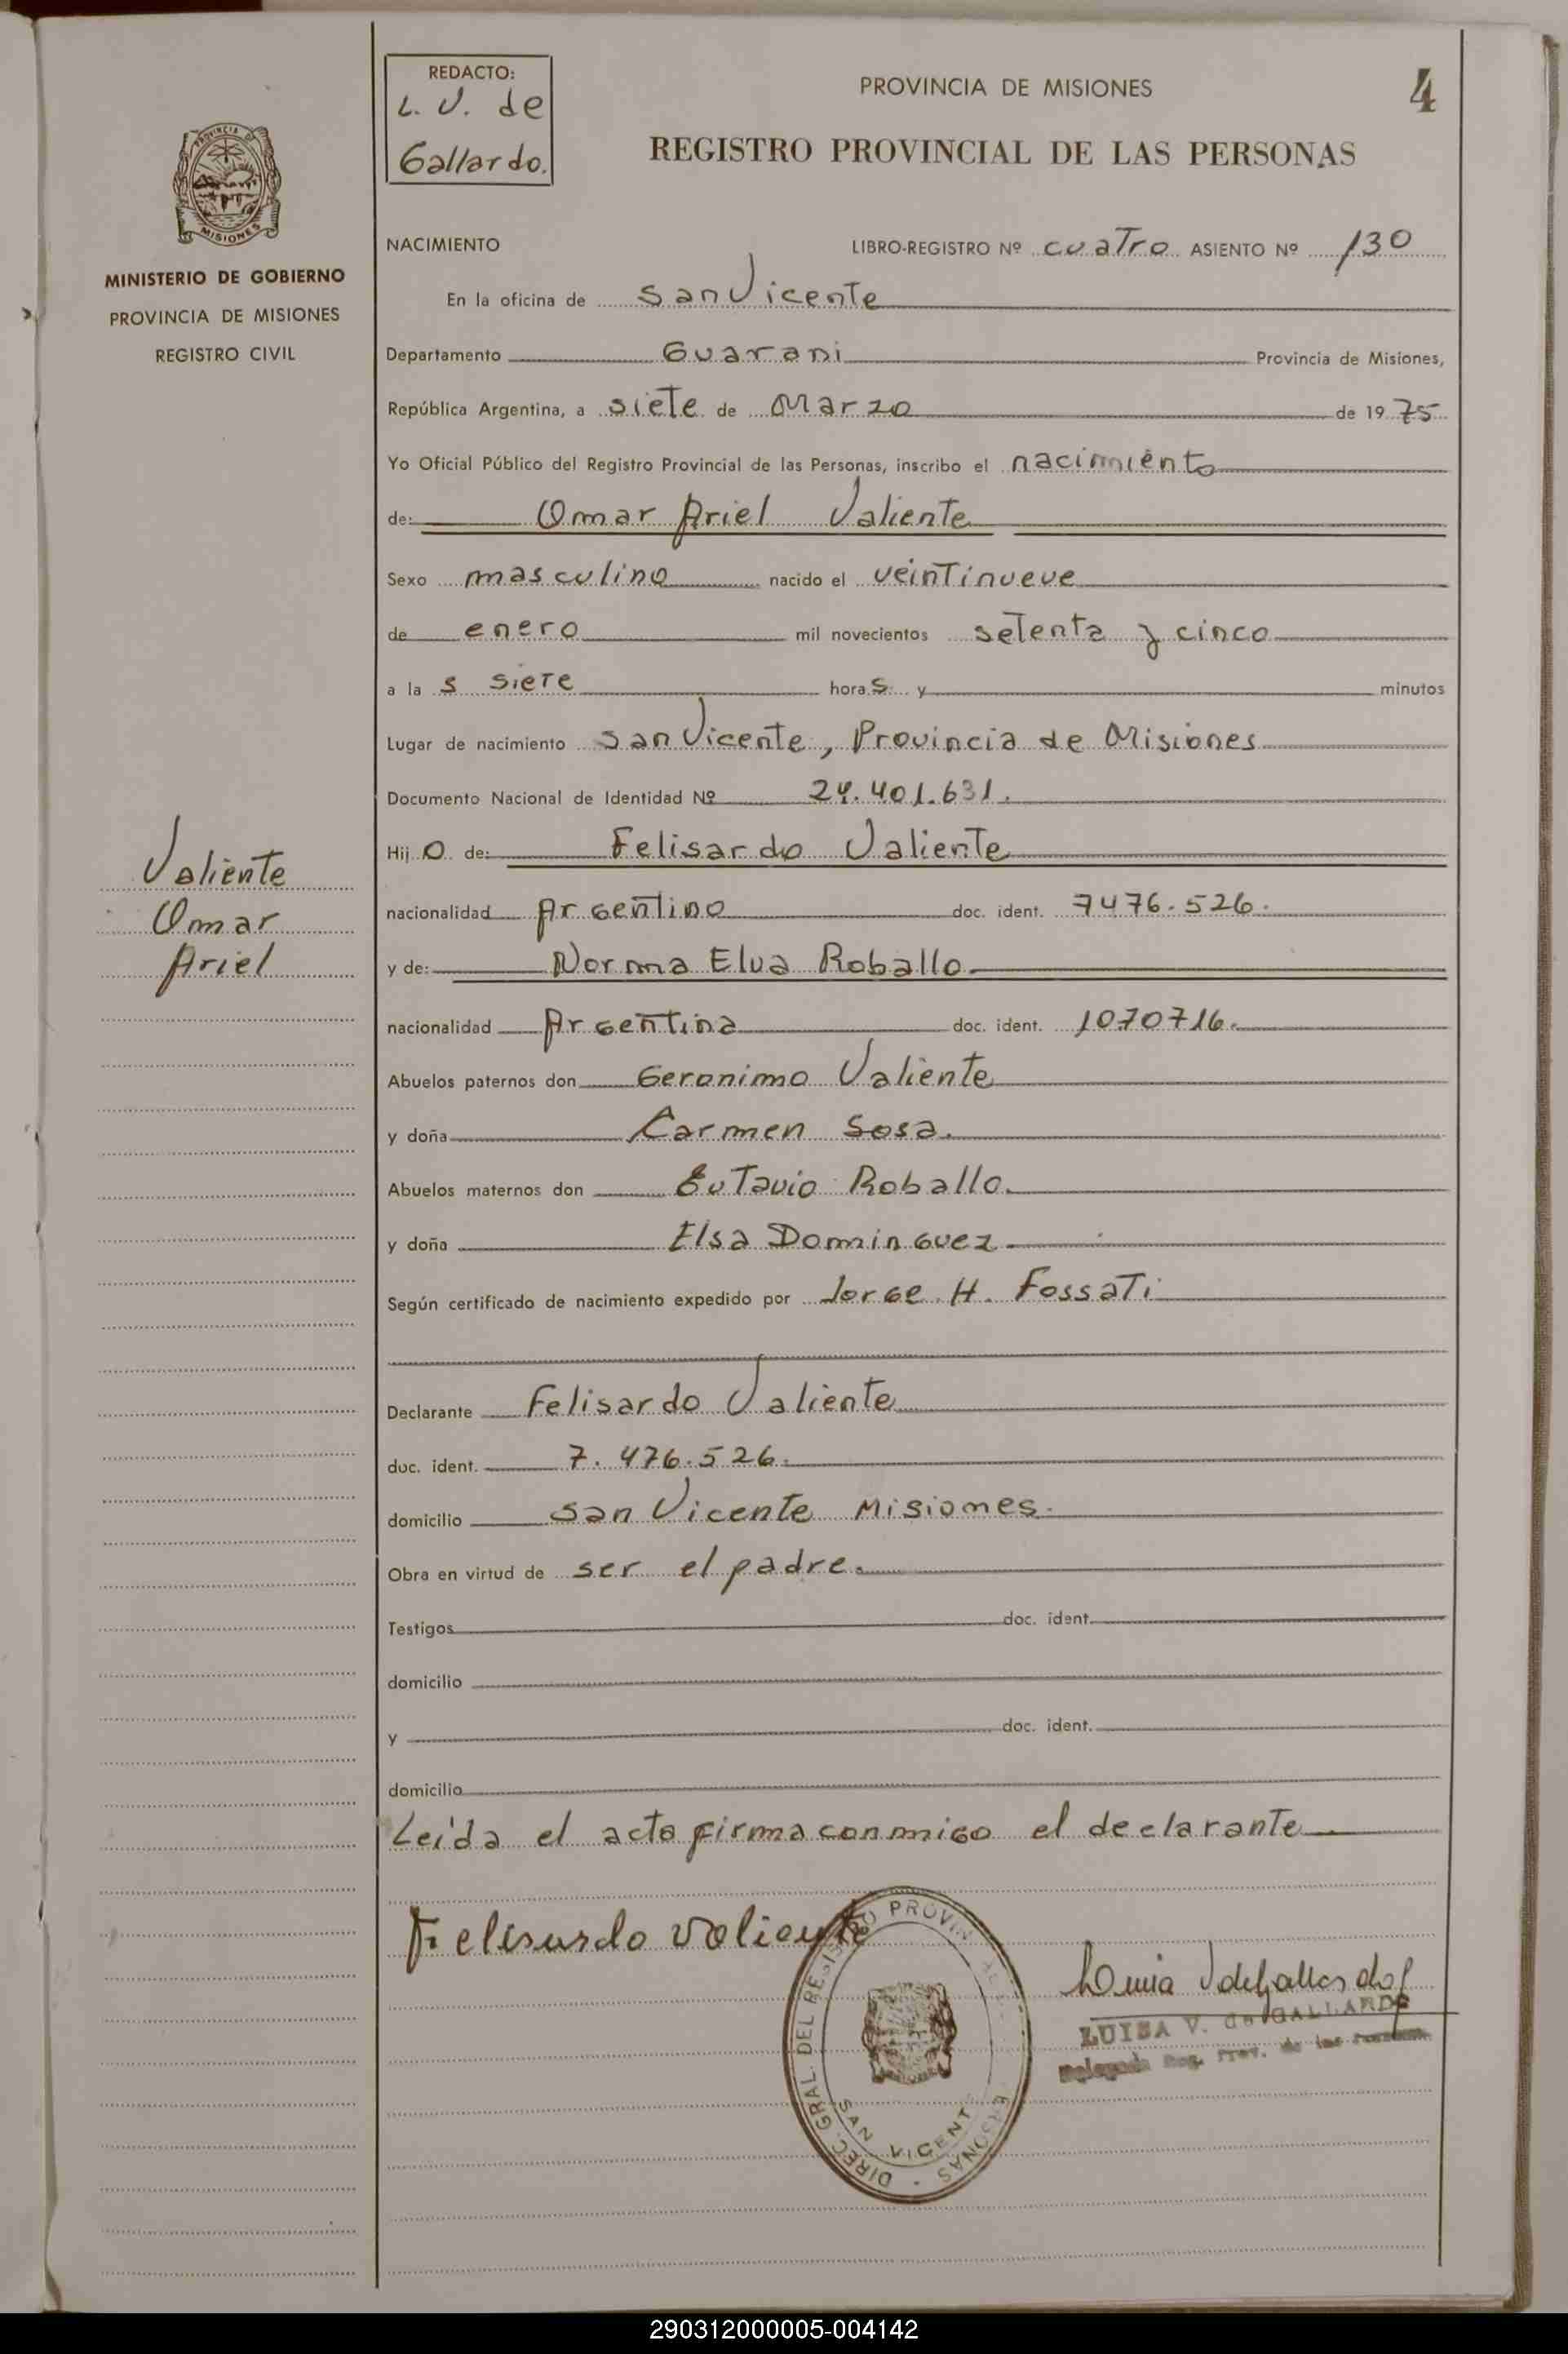 REDACTO:
L. V. de
Gallardo.
PROVINCIA DE MISIONES
4
REGISTRO PROVINCIAL DE LAS PERSONAS
PROVINCIA DE
MISIONES
MINISTERIO DE GOBIERNO
PROVINCIA DE MISIONES
REGISTRO CIVIL
NACIMIENTO LIBRO-REGISTRO Nº cuatro ASIENTO Nº 130
En la oficina de San Vicente
Departamento Guarani Provincia de Misiones,
República Argentina, a siete de Marzo de 1975
Yo Oficial Público del Registro Provincial de las Personas, inscribo el nacimiento
de: Omar Ariel Valiente
Sexo masculino nacido el veintinueve
de enero mil novecientos setenta y cinco
a la s siete hora s y minutos
Lugar de nacimiento San Vicente, Provincia de Misiones
Documento Nacional de Identidad Nº 24.401.631.
Hij o de: Felisardo Valiente
nacionalidad Argentino doc. ident. 7476.526.
y de: Norma Elva Roballo
nacionalidad Argentina doc. ident. 1070716.
Abuelos paternos don Geronimo Valiente
y doña Carmen Sosa.
Abuelos maternos don Eutavio Roballo.
y doña Elsa Dominguez
Según certificado de nacimiento expedido por Jorge H. Fossati
Declarante Felisardo Valiente
doc. ident. 7.476.526.
domicilio San Vicente Misiones.
Obra en virtud de ser el padre.
Testigos doc. ident.
domicilio
y doc. ident.
domicilio
Leida el acta firma conmigo el declarante
Valiente
Omar
Ariel
Felisardo Valiente
DIREC. GRAL. DEL REGISTRO PROVINCIAL PERSONAS
SAN VICENTE
Luisa V de Gallardo
LUISA V. de GALLARDO
Delegada Reg. Prov. de las Personas
290312000005-004142